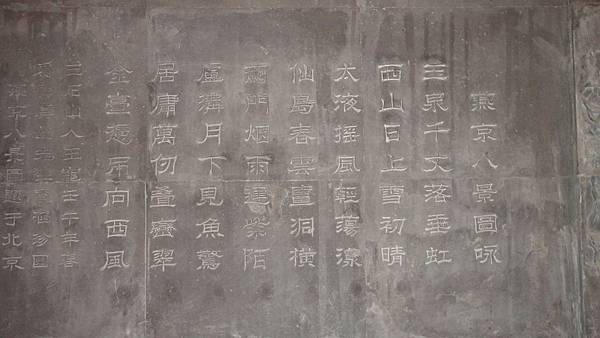 燕京八景圖咏
玉泉千丈落垂虹
西山日上雪初晴
太液搖風輕蕩漾
仙島春雲壹洞橫
薊門烟雨連紫陌
盧溝月下見魚驚
居庸萬仞叠蒼翠
金臺 席向西風
三石山人王 壬午年書
八景圖 于北京